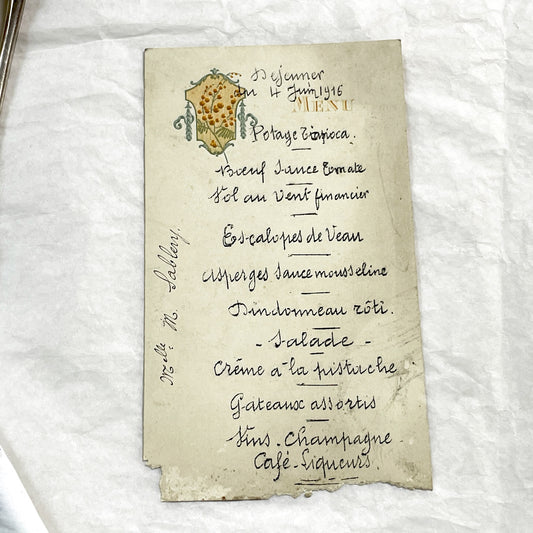 Déjeuner
du 4 Juin 1916
MENU
Potage Tapioca.
Bœuf Sauce Tomate
Vol au Vent financier
Escalopes de Veau
Asperges Sauce mousseline
Dindonneau rôti.
- Salade -
Crème à la pistache
Gateaux assortis
Vins - Champagne -
Café - Liqueurs.
Melle M. Sablery